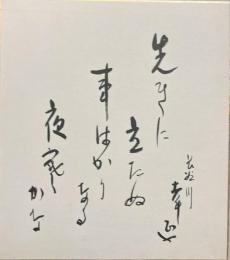 先きに
立たぬ
事はかり
なる
夜寒
かな
長谷川
幸延